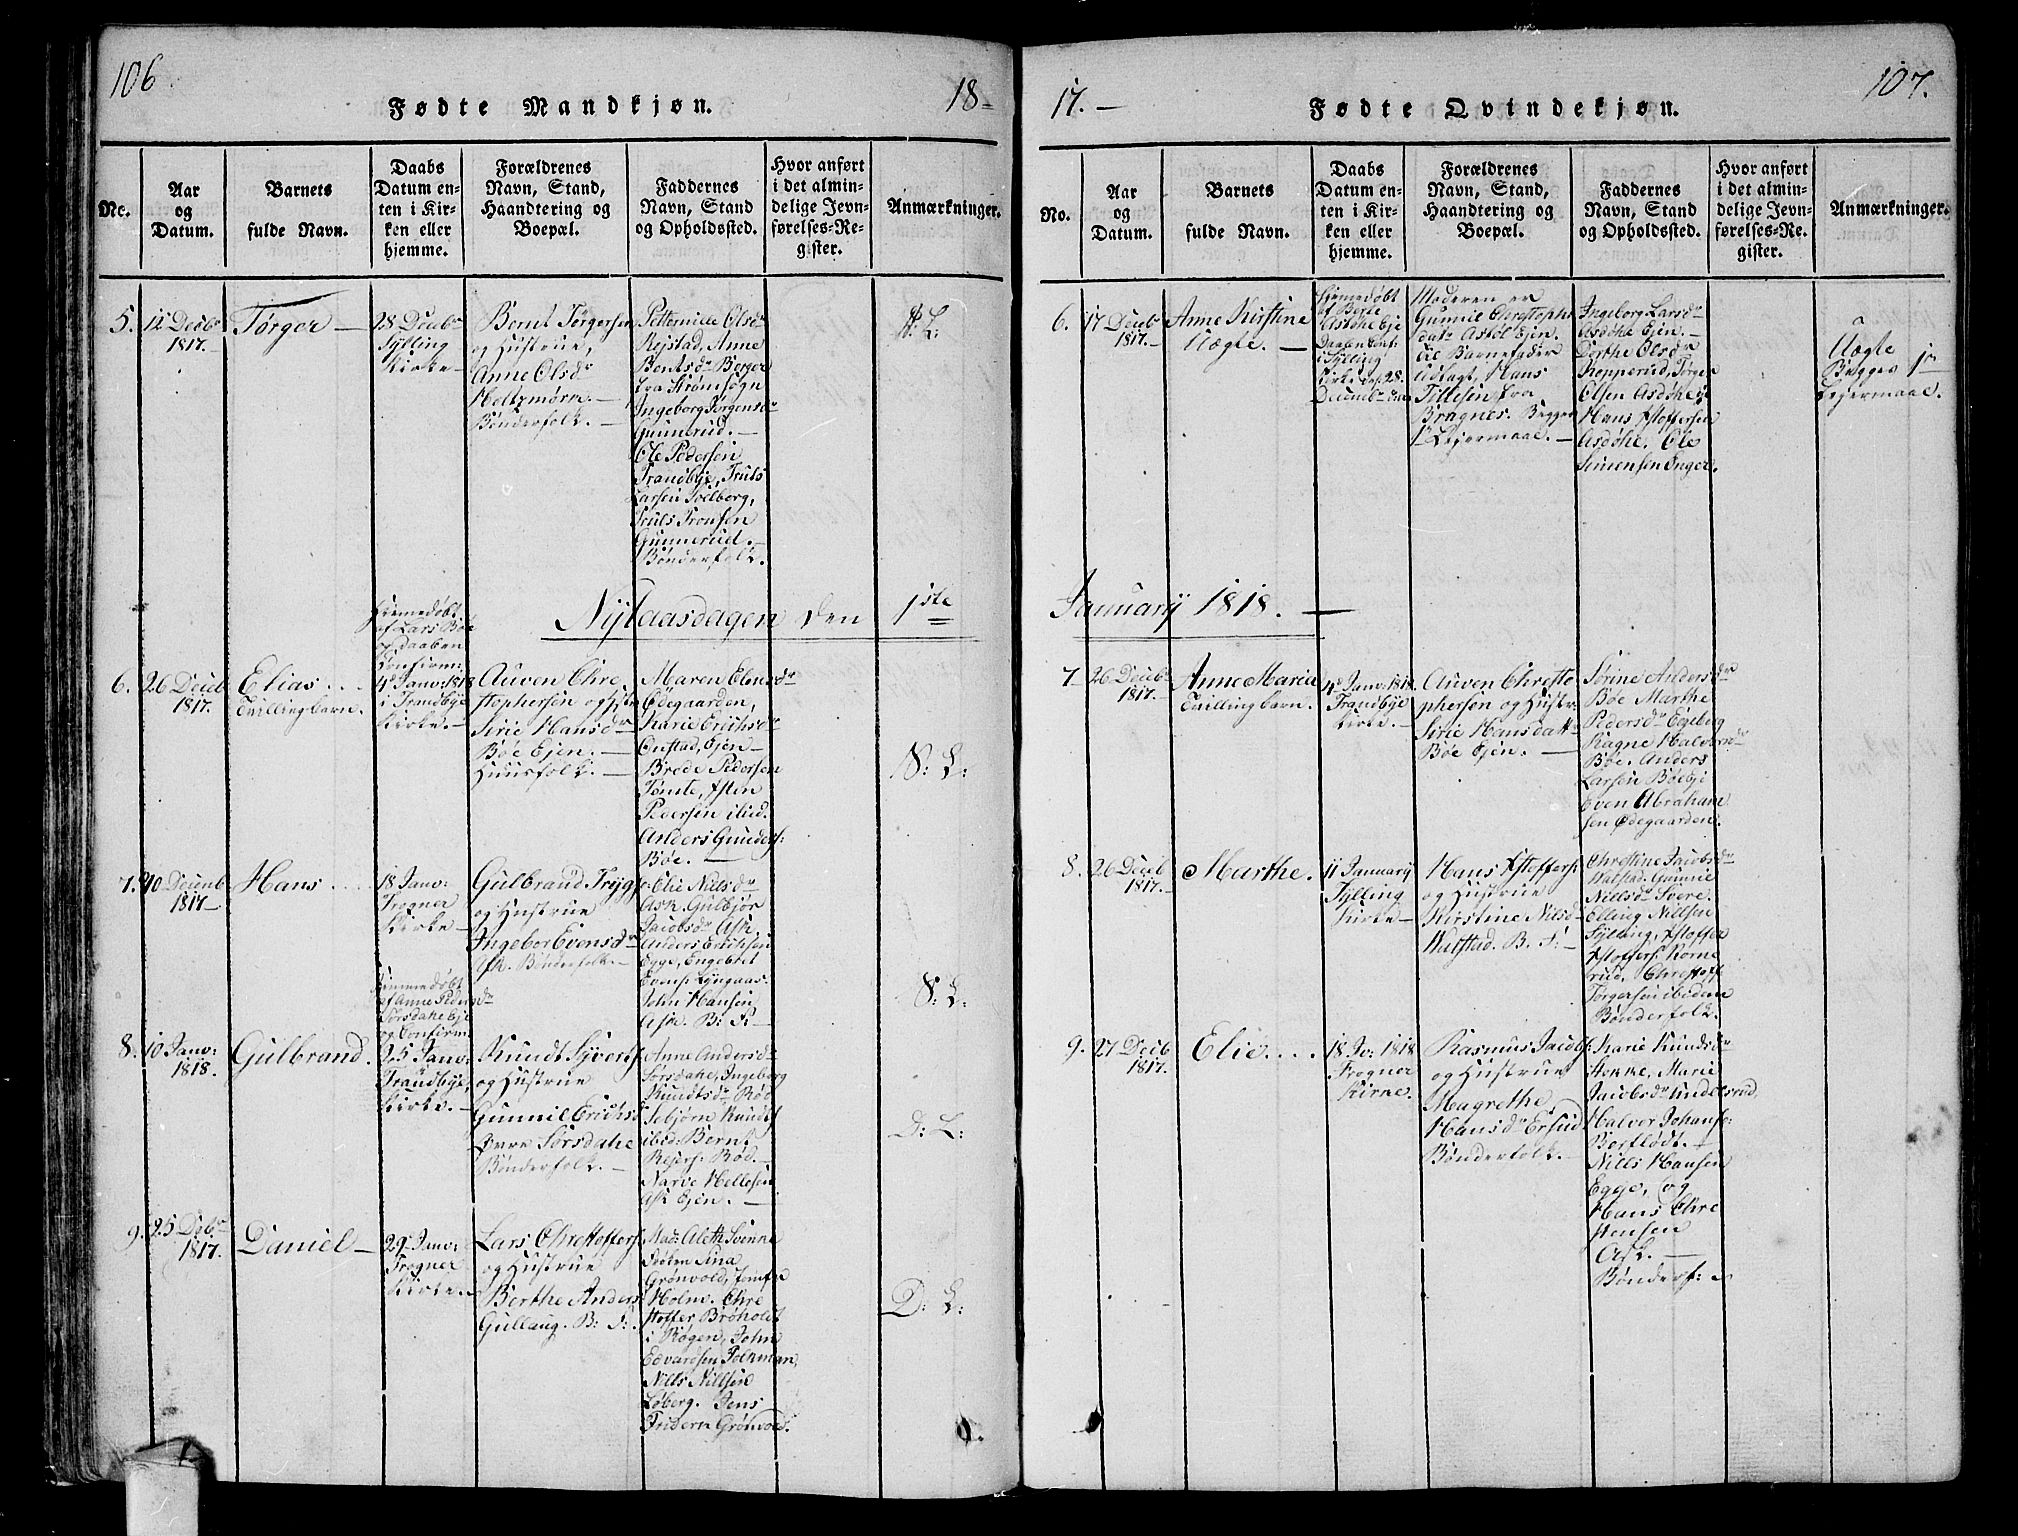 106
18-
Fødte Mandkjøn.
No.
Aar
og
Datum.
Barnets
fulde Navn.
Daabs
Datum en-
ten i Kir-
ken eller
hjemme.
Forældrenes
Navn, Stand,
Haandtering og
Boepæl.
Faddernes
Navn, Stand
og Opholdssted.
Hvor anført
i det almin-
delige Jevn-
førelses-Re-
gister.
Anmærkninger.
5.
12 Decbr
1817.-
Tørger
28 Decbr
Sylling
Kirke-
Bernt Tørgersen
og Hustrue,
Anne Olsdr
Holtzmørn.-
Bønderfolk.-
Petternille Olsdr
Rejstad, Anne
Bentsdr Berger
fra Strømsogn
Ingeborg Jørgensdr
Gunnerud.-
Ole Pedersen
Trandbye, Truls
Larsen Solberg,
Truls Tronsen
Gunnerud.-
Bønderfolk.
S: L:
Nytaarsdagen den 1ste
6.
26 Decb
1817.
Elias
Tvillingbarn.
Hiemedøbt
af Lars Bøe
og Daaben
Confirm:
4de Janv: 1818
i Trandbye
Kirke.-
Auven Chre
stophersen og Hstr
Sirie Hansdr
Bøe Ejen.-
Huusfolk.-
Maren Olensdr
Ødegaarden,
Marie Erichsdr
Onstad, Ejen-
Brede Pedersen
Tomte, Østen
Pedersen ibid.
Anders Gunders:
Bøe.-
S: L:
7.
10 Decemb
1817-
Hans
18 Janv:
Frogner
Kirke-
Gulbrand Trygs:
og Hustrue
Ingebor Evensdr
Ask. Bønderfolk.-
Elie Nielsdr
Ask. Gulbjør
Jacobsdr Ask,
Anders Erichsen
Egge, Engebret
Evens: Lyngaas.
John Hansen
Ask. B: F.-
S: L:
8.
10 Janv:
1818.
Gulbrand.
Hiemmedøbt
af Anne Pedersdr
Sørsdahl Eje
og Confirm.
25 Janv:
Trandbye,
Kirke.-
Knudt Syverts:
og Hustrue
Gunnil Erichsdr
Øvre Sørsdahl
Bønderfolk.-
Anne Andersdr
Sørsdahl, Ingeborg
Knudtsdr Rød
Tebjørn Knudts:
ibid: Bernt
Rejers: Rød.-
Narve Hellesen
Ask Ejen.-
D: L:
9.
25 Debr
1817.
Daniel-
29 Janv:
Frogner
Kirke.
Lars Christoffers:
og Hustrue
Berthe Anders
Gullaug. B: F:
Mad: Aleth Svenne
Holm Sina
Grønvold, Jomfr
Holm. Chre
stoffer Brøholdt
i Røgen, John
Edvardsen Folkman,
Nills Nillsen
Løberg. Jens
Friderm Grønvold.
D: L:
17.-
107.
Fødte Qvindekjøn.
No.
Aar
og
Datum.
Barnets
fulde Navn.
Daabs
Datum en-
ten i Kir-
ken eller
hjemme.
Forældrenes
Navn, Stand,
Haandtering og
Boepæl.
Faddernes
Navn, Stand
og Opholdssted.
Hvor anført
i det almin-
delige Jevn-
førelses-Re-
gister.
Anmærkninger.
6.
17 Decbr
1817.-
Anne Kirstine
Uægte.-
Hiemedøbt
af Berte
Asdøhl Eje
Daaben Conf:
i Sylling
Kirke den 28.
Decembr
Moderen er
Gunnil Christophs
datr Asdøl Ejen.
til Barnefader
Udlagt, Hans
Tillesen fra
Bragnes. Begges
1te Lejermaal.-
Ingeborg Larsdr
Asdøhl Ejen.-
Dorthe Olsdr
Kopperud, Tørger
Olsen Asdøhl
Hans Xstoffersen
Asdøhl. Ole
Simensen Enger.
Uægte
Begges 1te
Lejermaal.
January 1818.-
7-
26 Decbr
1817.-
Anne Maria
Tvillingbarn.
4de Janv: 1818
Trandbye
Kirke.-
Auven Christo
phersen og Hustr
Sirie Hansdatr
Bøe Ejen.-
Sørine Andersdr
Bøe Marthe
Pedersdr Egeberg
Ragne Halversdr
Bøe. Anders
Larsen Bøe Eje
Even Abraham
sen Ødegaarden.
8.
26 Decb
1817.
Marthe.
11 January
Sylling
Kirke-
Hans Xstoffers:
og Hustrue
Kirstine Nilsdr
Walstad. B. F:-
Christine Jacobsdr
Walstad. Gunnil
Nillsdr Svere.
Elling Nillsen
Sylling, Xstoffer
Xstoffers: Korne
rud. Christoff
Tørgersen ibidem
Bønderfolk.
9.
27 Decb
1817.
Elie....
18 Ja: 1818
Frogner
Kirke.
Rasmus Jacobs:
og Hustrue
Magrethe
Hansdr Ersrud
Bønderfolk.-
Marie Knudsdr
Marie
Jacobsdr Lindelsrud,
Halver Johans:
Bortlødt.-
Nills Hansen
Egge, og
Hans Chre
stensen
Ask.-
Bønderf: